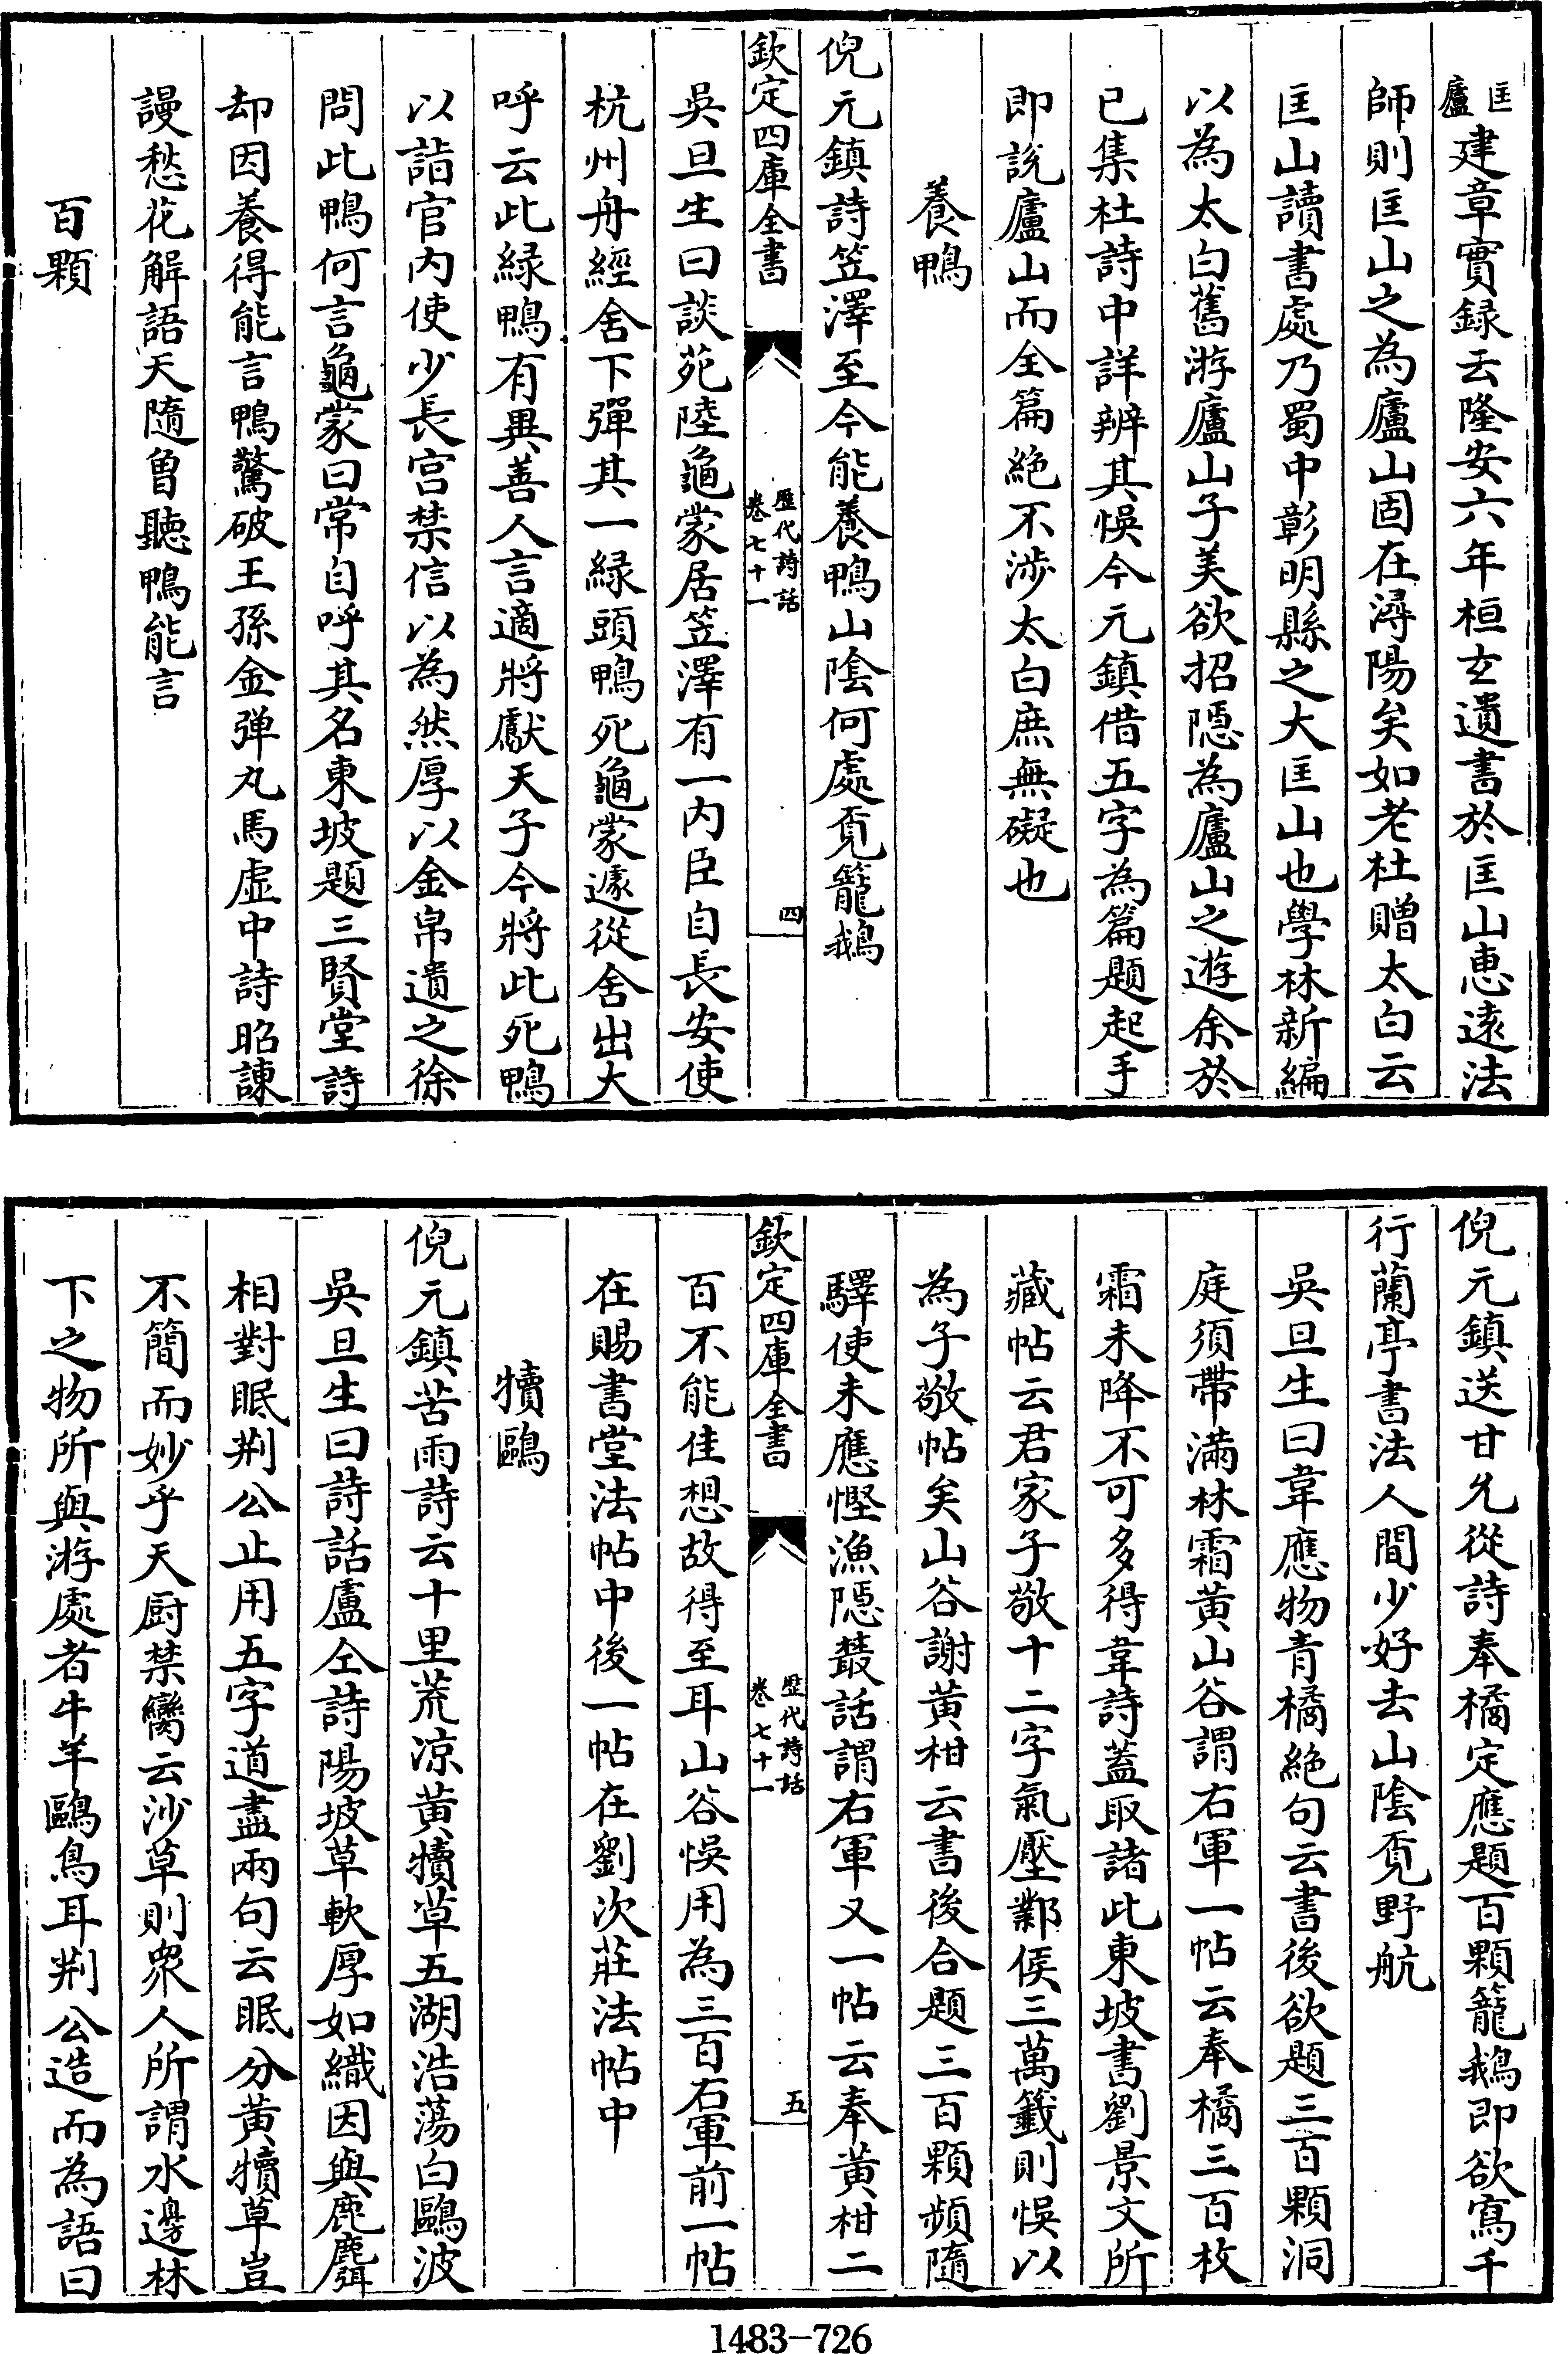 匡廬建章實録云隆安六年桓玄遺書於匡山惠遠法
師則匡山之為廬山固在潯陽矣如老杜贈太白云
匡山讀書處乃蜀中彰明縣之大匡山也學林新編
以為太白舊游廬山子美欲招隠為廬山之遊余於
已集杜詩中詳辨其悞今元鎮借五字為篇題起手
即說廬山而全篇絶不涉太白庶無礙也
養鴨
倪元鎮詩笠澤至今能養鴨山陰何處覔籠鵝
欽定四庫全書
歴代詩話
卷七十一
四
吳旦生曰談苑陸龜蒙居笠澤有一内臣自長安使
杭州舟經舍下彈其一緑頭鴨死龜蒙遽從舍出大
呼云此緑鴨有異善人言適將獻天子今將此死鴨
以詣官内使少長宫禁信以為然厚以金帛遺之徐
問此鴨何言龜蒙曰常自呼其名東坡題三賢堂詩
却因養得能言鴨驚破王孫金弹丸馬虚中詩昭諫
謾愁花解語天隨曾聽鴨能言
百顆
倪元鎮送甘允從詩奉橘定應題百顆籠鵝即欲寫千
行蘭亭書法人間少好去山陰覔野航
吳旦生曰韋應物青橘絶句云書後欲題三百顆洞
庭須帶滿林霜黄山谷謂右軍一帖云奉橘三百枚
霜未降不可多得韋詩蓋取諸此東坡書劉景文所
藏帖云君家子敬十二字氣壓鄴侯三萬籤則悞以
為子敬帖矣山谷謝黄柑云書後合題三百顆頻隨
驛使未應慳漁隠叢話謂右軍又一帖云奉黄柑二
欽定四庫全書
歴代詩話
卷七十一
五
百不能佳想故得至耳山谷悞用為三百右軍前一帖
在賜書堂法帖中後一帖在劉次莊法帖中
犢鷗
倪元鎮苦雨詩云十里荒凉黄犢草五湖浩蕩白鷗波
吳旦生曰詩話盧仝詩陽坡草軟厚如織因與鹿麛
相對眠荆公止用五字道盡兩句云眠分黄犢草豈
不簡而妙乎天厨禁臠云沙草則衆人所謂水邊林
下之物所與游處者牛羊鷗鳥耳荆公造而為語曰
1483-726